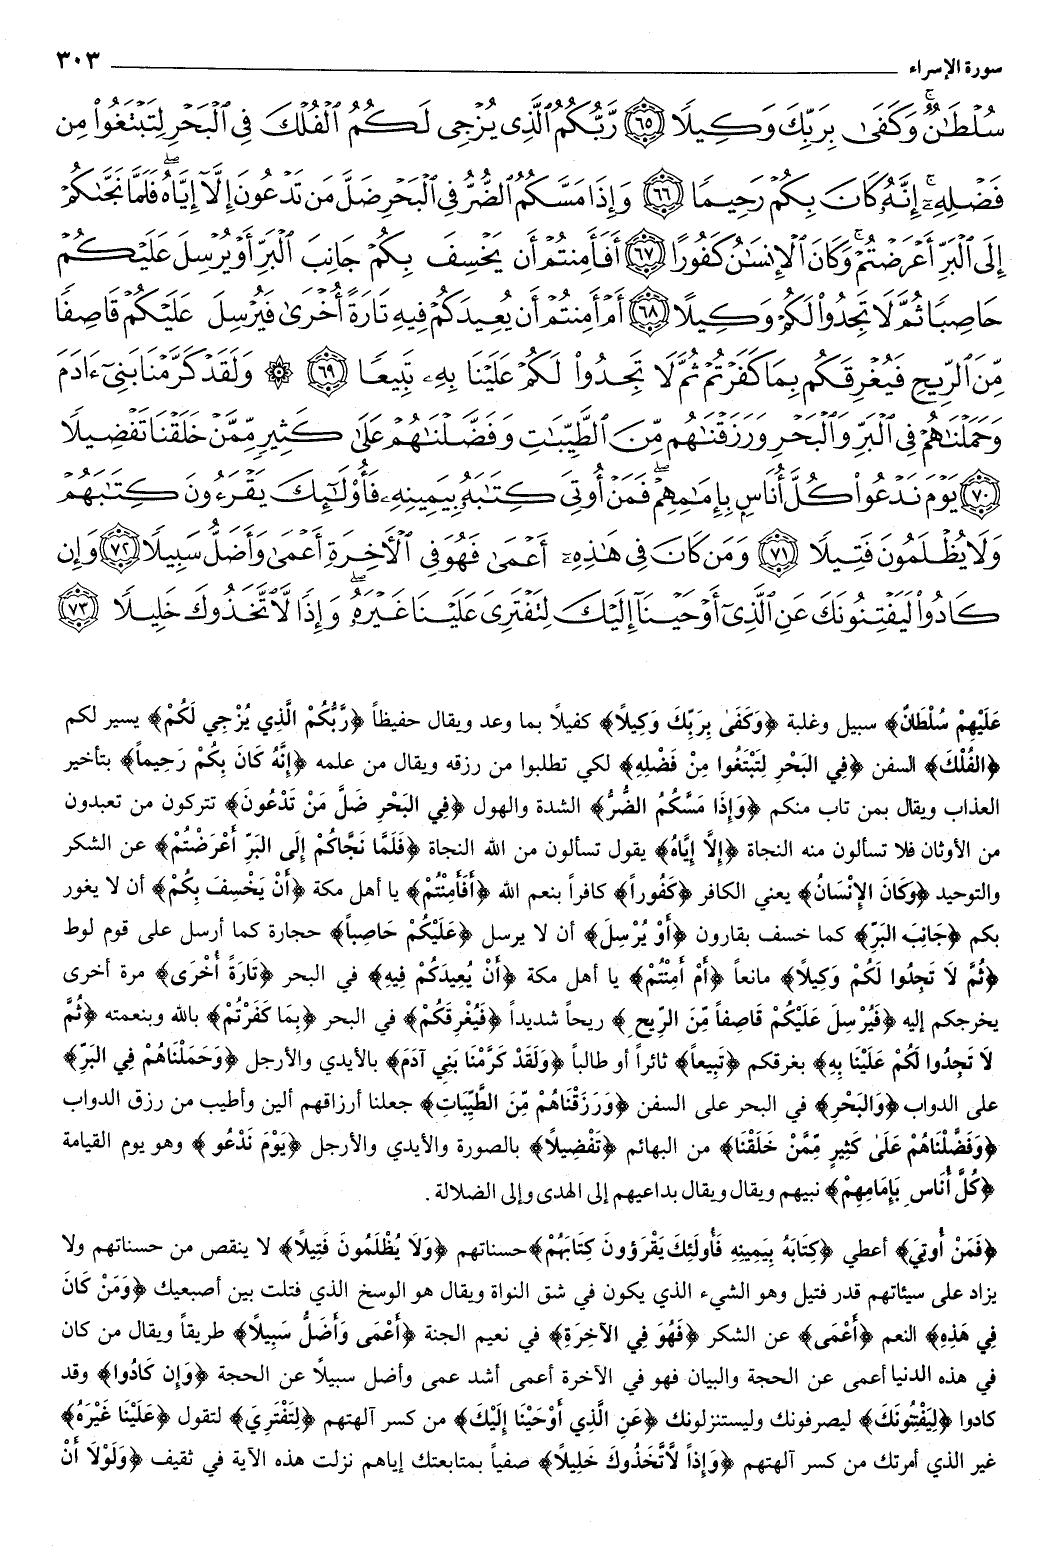 سورة الإسراء ٣٠٣
سُلْطَٰنٌ ۚ وَكَفَىٰ بِرَبِّكَ وَكِيلًا ٦٥ رَّبُّكُمُ ٱلَّذِى يُزْجِى لَكُمُ ٱلْفُلْكَ فِى ٱلْبَحْرِ لِتَبْتَغُوا۟ مِن
فَضْلِهِۦٓ ۚ إِنَّهُۥ كَانَ بِكُمْ رَحِيمًا ٦٦ وَإِذَا مَسَّكُمُ ٱلضُّرُّ فِى ٱلْبَحْرِ ضَلَّ مَن تَدْعُونَ إِلَّآ إِيَّاهُ ۖ فَلَمَّا نَجَّىٰكُمْ
إِلَى ٱلْبَرِّ أَعْرَضْتُمْ ۚ وَكَانَ ٱلْإِنسَٰنُ كَفُورًا ٦٧ أَفَأَمِنتُمْ أَن يَخْسِفَ بِكُمْ جَانِبَ ٱلْبَرِّ أَوْ يُرْسِلَ عَلَيْكُمْ
حَاصِبًا ثُمَّ لَا تَجِدُوا۟ لَكُمْ وَكِيلًا ٦٨ أَمْ أَمِنتُمْ أَن يُعِيدَكُمْ فِيهِ تَارَةً أُخْرَىٰ فَيُرْسِلَ عَلَيْكُمْ قَاصِفًا
مِّنَ ٱلرِّيحِ فَيُغْرِقَكُم بِمَا كَفَرْتُمْ ثُمَّ لَا تَجِدُوا۟ لَكُمْ عَلَيْنَا بِهِۦ تَبِيعًا ٦٩ ۞ وَلَقَدْ كَرَّمْنَا بَنِىٓ ءَادَمَ
وَحَمَلْنَٰهُمْ فِى ٱلْبَرِّ وَٱلْبَحْرِ وَرَزَقْنَٰهُم مِّنَ ٱلطَّيِّبَٰتِ وَفَضَّلْنَٰهُمْ عَلَىٰ كَثِيرٍ مِّمَّنْ خَلَقْنَا تَفْضِيلًا
٧٠ يَوْمَ نَدْعُوا۟ كُلَّ أُنَاسٍ بِإِمَٰمِهِمْ ۖ فَمَنْ أُوتِىَ كِتَٰبَهُۥ بِيَمِينِهِۦ فَأُو۟لَٰٓئِكَ يَقْرَءُونَ كِتَٰبَهُمْ
وَلَا يُظْلَمُونَ فَتِيلًا ٧١ وَمَن كَانَ فِى هَٰذِهِۦٓ أَعْمَىٰ فَهُوَ فِى ٱلْءَاخِرَةِ أَعْمَىٰ وَأَضَلُّ سَبِيلًا ٧٢ وَإِن
كَادُوا۟ لَيَفْتِنُونَكَ عَنِ ٱلَّذِىٓ أَوْحَيْنَآ إِلَيْكَ لِتَفْتَرِىَ عَلَيْنَا غَيْرَهُۥ ۖ وَإِذًا لَّٱتَّخَذُوكَ خَلِيلًا ٧٣
عَلَيْهِمْ سُلْطَانٌ﴾ سبيل وغلبة ﴿وَكَفَىٰ بِرَبِّكَ وَكِيلًا﴾ كفيلاً بما وعد ويقال حفيظاً ﴿رَّبُّكُمُ الَّذِي يُزْجِي لَكُمْ﴾ يسير لكم
﴿الفُلْكَ﴾ السفن ﴿فِي البَحْرِ لِتَبْتَغُوا مِنْ فَضْلِهِ﴾ لكي تطلبوا من رزقه ويقال من علمه ﴿إِنَّهُ كَانَ بِكُمْ رَحِيماً﴾ بتأخير
العذاب ويقال بمن تاب منكم ﴿وَإِذَا مَسَّكُمُ الضُّرُّ﴾ الشدة والهول ﴿فِي البَحْرِ ضَلَّ مَنْ تَدْعُونَ﴾ تتركون من تعبدون
من الأوثان فلا تسألون منه النجاة ﴿إِلَّا إِيَّاهُ﴾ يقول تسألون من الله النجاة ﴿فَلَمَّا نَجَّاكُمْ إِلَى البَرِّ أَعْرَضْتُمْ﴾ عن الشكر
والتوحيد ﴿وَكَانَ الإِنْسَانُ﴾ يعني الكافر ﴿كَفُوراً﴾ كافراً بنعم الله ﴿أَفَأَمِنْتُمْ﴾ يا أهل مكة ﴿أَنْ يَخْسِفَ بِكُمْ﴾ أن لا يغور
بكم ﴿جَانِبَ البَرِّ﴾ كما خسف بقارون ﴿أَوْ يُرْسِلَ﴾ أن لا يرسل ﴿عَلَيْكُمْ حَاصِباً﴾ حجارة كما أرسل على قوم لوط
﴿ثُمَّ لَا تَجِدُوا لَكُمْ وَكِيلًا﴾ مانعاً ﴿أَمْ أَمِنْتُمْ﴾ يا أهل مكة ﴿أَنْ يُعِيدَكُمْ فِيهِ﴾ في البحر ﴿تَارَةً أُخْرَى﴾ مرة أخرى
يخرجكم إليه ﴿فَيُرْسِلَ عَلَيْكُمْ قَاصِفاً مِّنَ الرِّيحِ﴾ ريحاً شديداً ﴿فَيُغْرِقَكُمْ﴾ في البحر ﴿بِمَا كَفَرْتُمْ﴾ بالله وبنعمته ﴿ثُمَّ
لَا تَجِدُوا لَكُمْ عَلَيْنَا بِهِ﴾ بغرقكم ﴿تَبِيعاً﴾ ثائراً أو طالباً ﴿وَلَقَدْ كَرَّمْنَا بَنِي آدَمَ﴾ بالأيدي والأرجل ﴿وَحَمَلْنَاهُمْ فِي البَرِّ﴾
على الدواب ﴿وَالبَحْرِ﴾ في البحر على السفن ﴿وَرَزَقْنَاهُمْ مِّنَ الطَّيِّبَاتِ﴾ جعلنا أرزاقهم ألين وأطيب من رزق الدواب
﴿وَفَضَّلْنَاهُمْ عَلَىٰ كَثِيرٍ مِّمَّنْ خَلَقْنَا﴾ من البهائم ﴿تَفْضِيلًا﴾ بالصورة والأيدي والأرجل ﴿يَوْمَ نَدْعُو﴾ وهو يوم القيامة
﴿كُلَّ أُنَاسٍ بِإِمَامِهِمْ﴾ نبيهم ويقال ويقال بداعيهم إلى الهدى وإلى الضلالة .
﴿فَمَنْ أُوتِيَ﴾ أعطي ﴿كِتَابَهُ بِيَمِينِهِ فَأُولَئِكَ يَقْرَؤُونَ كِتَابَهُمْ﴾ حسناتهم ﴿وَلَا يُظْلَمُونَ فَتِيلًا﴾ لا ينقص من حسناتهم ولا
يزاد على سيئاتهم قدر فتيل وهو الشيء الذي يكون في شق النواة ويقال هو الوسخ الذي فتلت بين أصبعيك ﴿وَمَنْ كَانَ
فِي هَذِهِ﴾ النعم ﴿أَعْمَى﴾ عن الشكر ﴿فَهُوَ فِي الآخِرَةِ﴾ في نعيم الجنة ﴿أَعْمَى وَأَضَلُّ سَبِيلًا﴾ طريقاً ويقال من كان
في هذه الدنيا أعمى عن الحجة والبيان فهو في الآخرة أعمى أشد عمى وأضل سبيلاً عن الحجة ﴿وَإِن كَادُوا﴾ وقد
كادوا ﴿لَيَفْتِنُونَكَ﴾ ليصرفونك وليستنزلونك ﴿عَنِ الَّذِي أَوْحَيْنَا إِلَيْكَ﴾ من كسر آلهتهم ﴿لِتَفْتَرِيَ﴾ لتقول ﴿عَلَيْنَا غَيْرَهُ﴾
غير الذي أمرتك من كسر آلهتهم ﴿وَإِذاً لَّاتَّخَذُوكَ خَلِيلًا﴾ صفياً بمتابعتك إياهم نزلت هذه الآية في ثقيف ﴿وَلَوْلَا أَنْ